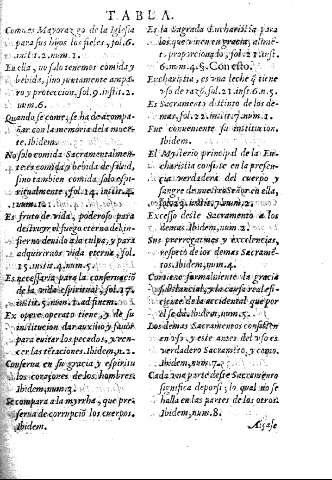 TABLA.
Comues Mayorazgo de la Iglesia
para sus hijos los fieles, fol.6.
inst.2.num.1.
En ella, no solo tenemos comida y
bebida, sino juntamente ampa-
ro y proteccion, fol.9.inst.2.
num.6.
Quando se come, se ha de acompa-
ñar con la memoria de la muer-
te, Ibidem.
No solo comida Sacramentalmen-
te es comida y bebida de salud,
sino tambien comida solo espi-
ritualmente, fol.14. instit.4.
num.12.
Es fruto de vida, poderoso para
destruyr el fuego eterno del in-
fierno deuido a la culpa, y para
adquirirnos vida eterna, fol.
15.instit.4.num.5.
Es necessaria para la conseruació
de la vida espiritual, fol.17.
instit.5.num.1.ad finem.
Ex opere operato tiene, y de su
institucion dar auxilio y fauor
para euitar los pecados, y ven-
cer las tētaciones.Ibidem,n.2.
Conserua en su gracia y espiritu
los coraçones de los hombres.
Ibidem,num.3.
Se compara a la myrrha, que pre-
serua de corrupció los cuerpos.
Ibidem.
Es la Sagrada Eucharistia para
los que viuen en gracia, alimē-
to proporcionado, fol.21.inst.
6.num.4.§.Con esto.
Eucharistia, es vna leche q̃ tiene
vso de razó, fol.21.inst.6.n.5.
Es Sacramento distinto de los de-
mas, fol.22.instit.7.num.1.
Fue conueniente su institucion.
Ibidem.
El Mysterio principal de la Eu-
charistia consiste en la presen-
cia verdadera del cuerpo y
sangre de nuestro Señor en ella,
fol.23.instit.7.num.2.
Excesso deste Sacramento a los
demas.Ibidem,num.2.
Sus prerrogatiuas y excelencias,
respeto de los demas Sacramē-
tos.Ibidem,num.4.
Contiene formalmente la gracia
substancial, y la causa real efi-
ciente de la accidental que por
el se da.Ibidem,num.5.
Los demas Sacramentos consisten
en vso, y este antes del vso es
verdadero Sacramēto, y como.
Ibidem,num.7.
Cada vna parte deste Sacramento
significa de por si; lo qual no se
halla en las partes de los otros.
Ibidem,num.8.